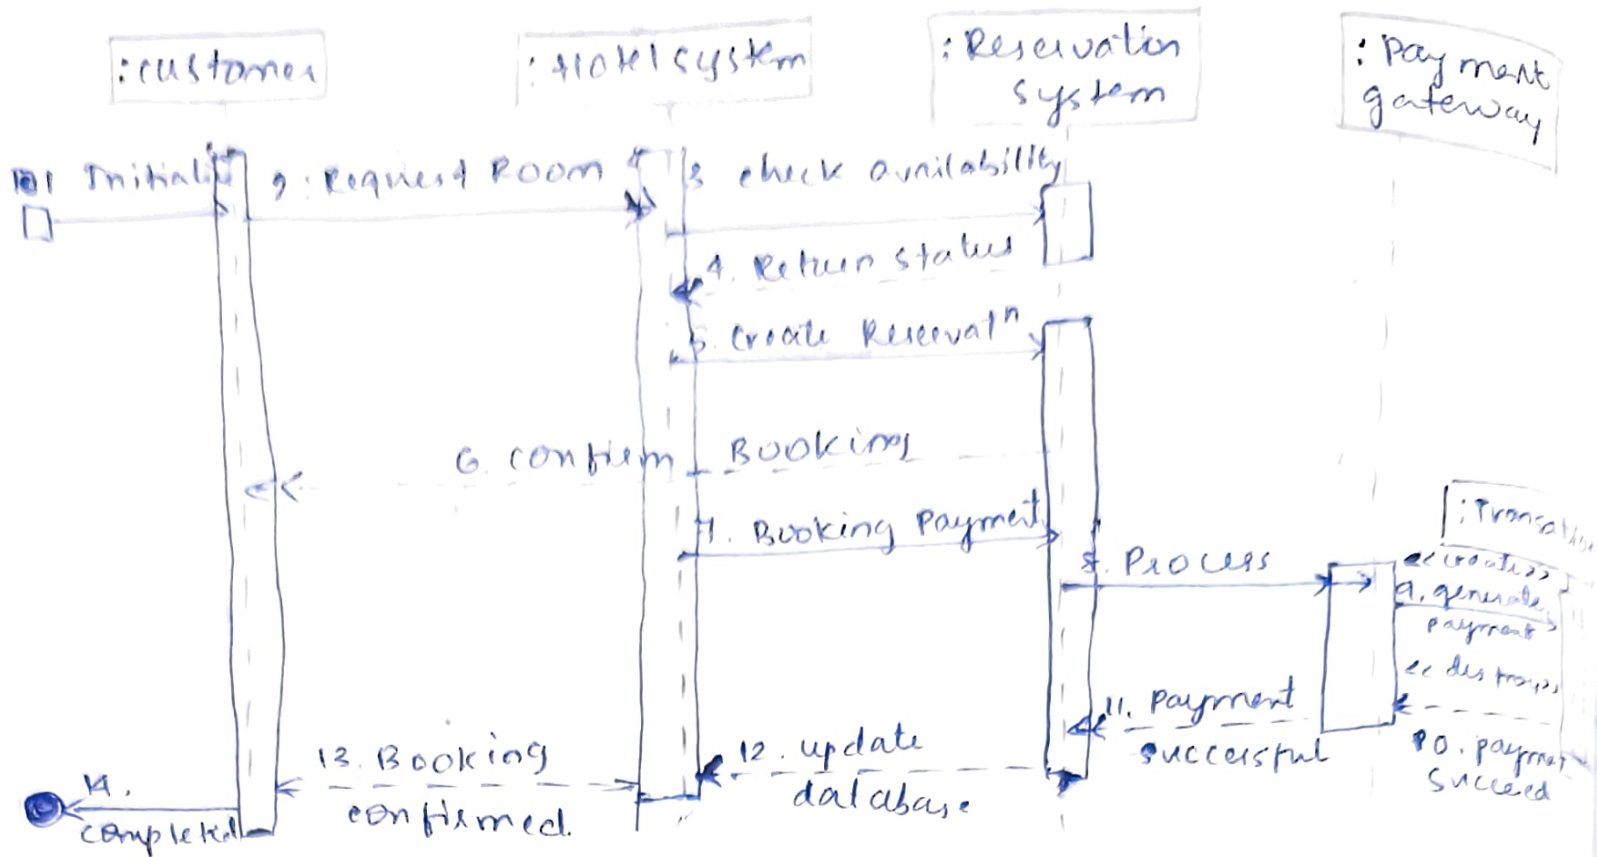 :customer
:Hotel system
:Reservation
system
:Payment
gateway
1 Initiali
2:Request Room
3 check availability
4. Return status
5. Create Reservatⁿ
6. confirm Booking
7. Booking Payment
8. Process
:Transaction
<<create>>
9. generate
payment
<<destroy>>
10. payment
succeed
11. Payment
successful
12. update
database
13. Booking
confirmed.
14.
completed